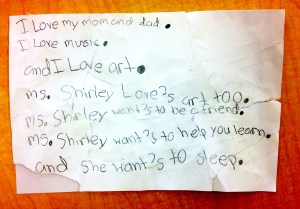 I Love my mom and dad.
I Love music.
and I Love art.
ms. Shirley Love?s art too.
ms. Shirley want?s to be a friend.
ms. Shirley want?s to help you learn.
and she want?s to sleep.